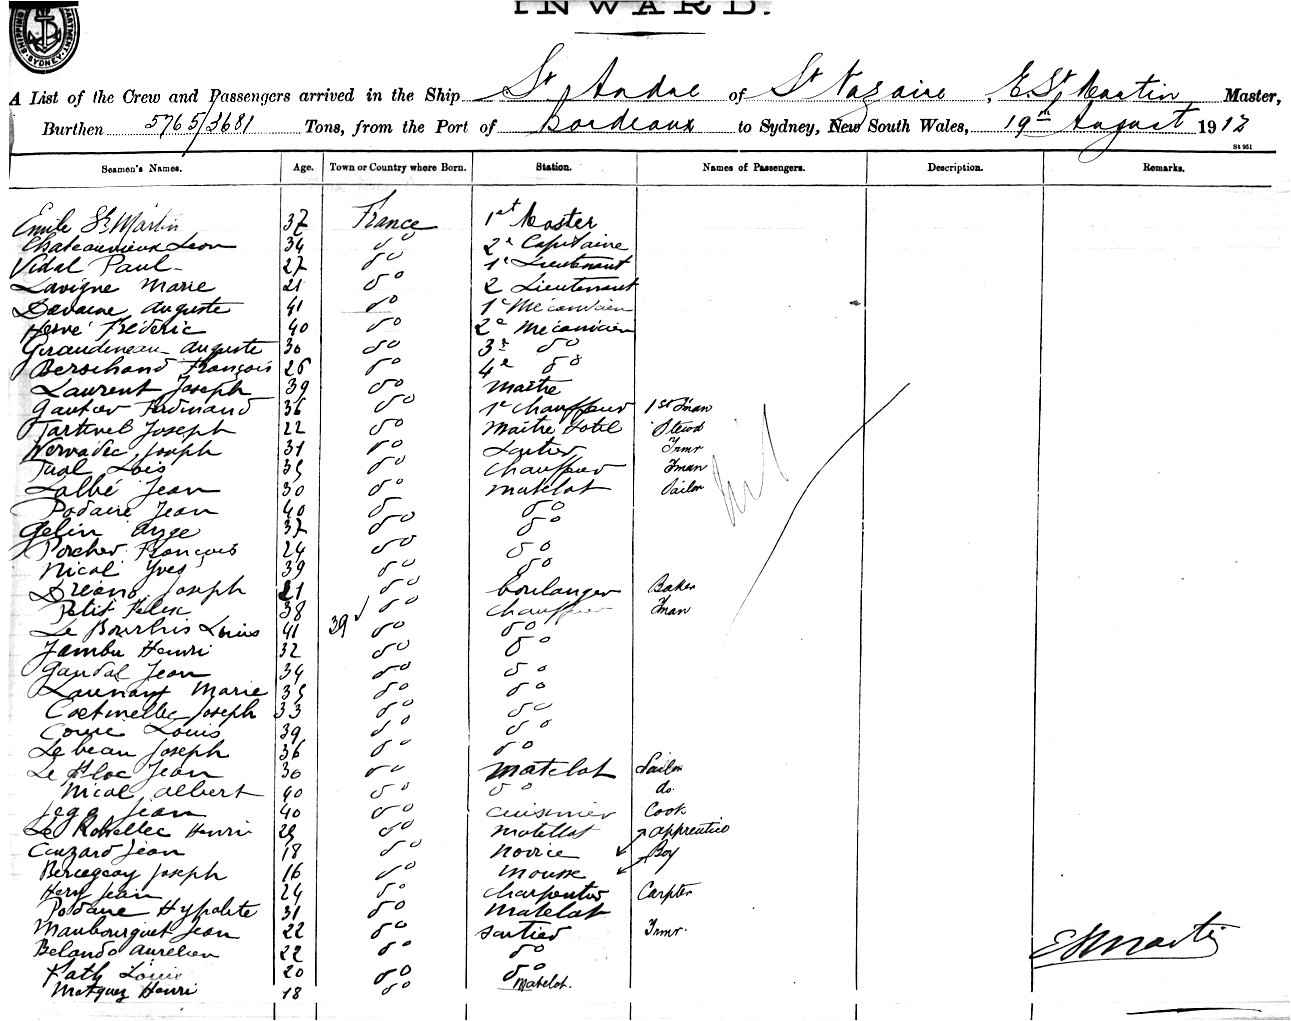 INWARD.
SHIPPING DEPARTMENT. SYDNEY.
A List of the Crew and Passengers arrived in the Ship St Andre of St Nazaire, E. St Martin Master,
Burthen 5765/3681 Tons, from the Port of Bordeaux to Sydney, New South Wales, 19th August 1912
St 951
Seamen's Names. Age. Town or Country where Born. Station. Names of Passengers. Description. Remarks.
Emile St Martin 37 France 1st Master
Chateauvieux Leon 34 do 2e Capitaine
Vidal Paul 27 do 1e Lieutenant
Lavigne Marie 21 do 2 Lieutenant
Davaine Auguste 41 do 1e Mécanicien
Hervé Fréderic 40 do 2e Mécanicien
Giraudineau Auguste 30 do 3e do
Berschand François 26 do 4e do
Laurent Joseph 39 do Maitre
Gautier Ferdinand 36 do 1e chauffeur 1st Fman
Tartivel Joseph 22 do Maitre Hotel Stewd
Kervadec Joseph 31 do Soutier Trmr
Tual Loïs 35 do chauffeur Fman
Lalbé Jean 30 do matelot Sailor
Podaire Jean 40 do do
Gelin Ange 37 do do
Porcher François 24 do do
Nicol Yves 39 do do
Dréano Joseph 21 do boulanger Baker
Petit Felix 38 do chauffeur Fman
Le Bourhis Louis 41 39 do do
Jambu Henri 32 do do
Gaudal Jean 34 do do
Launay Marie 35 do do
Coetmellec Joseph 33 do do
Louis 39 do do
Le beau Joseph 36 do do
Le Floc Jean 30 do Matelot Sailor
Nicol Albert 40 do do do.
Jego Jean 40 do cuisinier Cook
Le Rohellec Henri 25 do Matellot
Cruzard Jean 18 do novice apprentice
Joseph 16 do mousse Boy
Hery Jean 24 do charpentier Carpter
Podaire Hypolite 31 do Matelot
Maubourguet Jean 22 do soutier Trmr.
Belando Aurelien 22 do do
Kath Louis 20 do do
Matquez Henri 18 do Matelot.
Nil
E St Martin